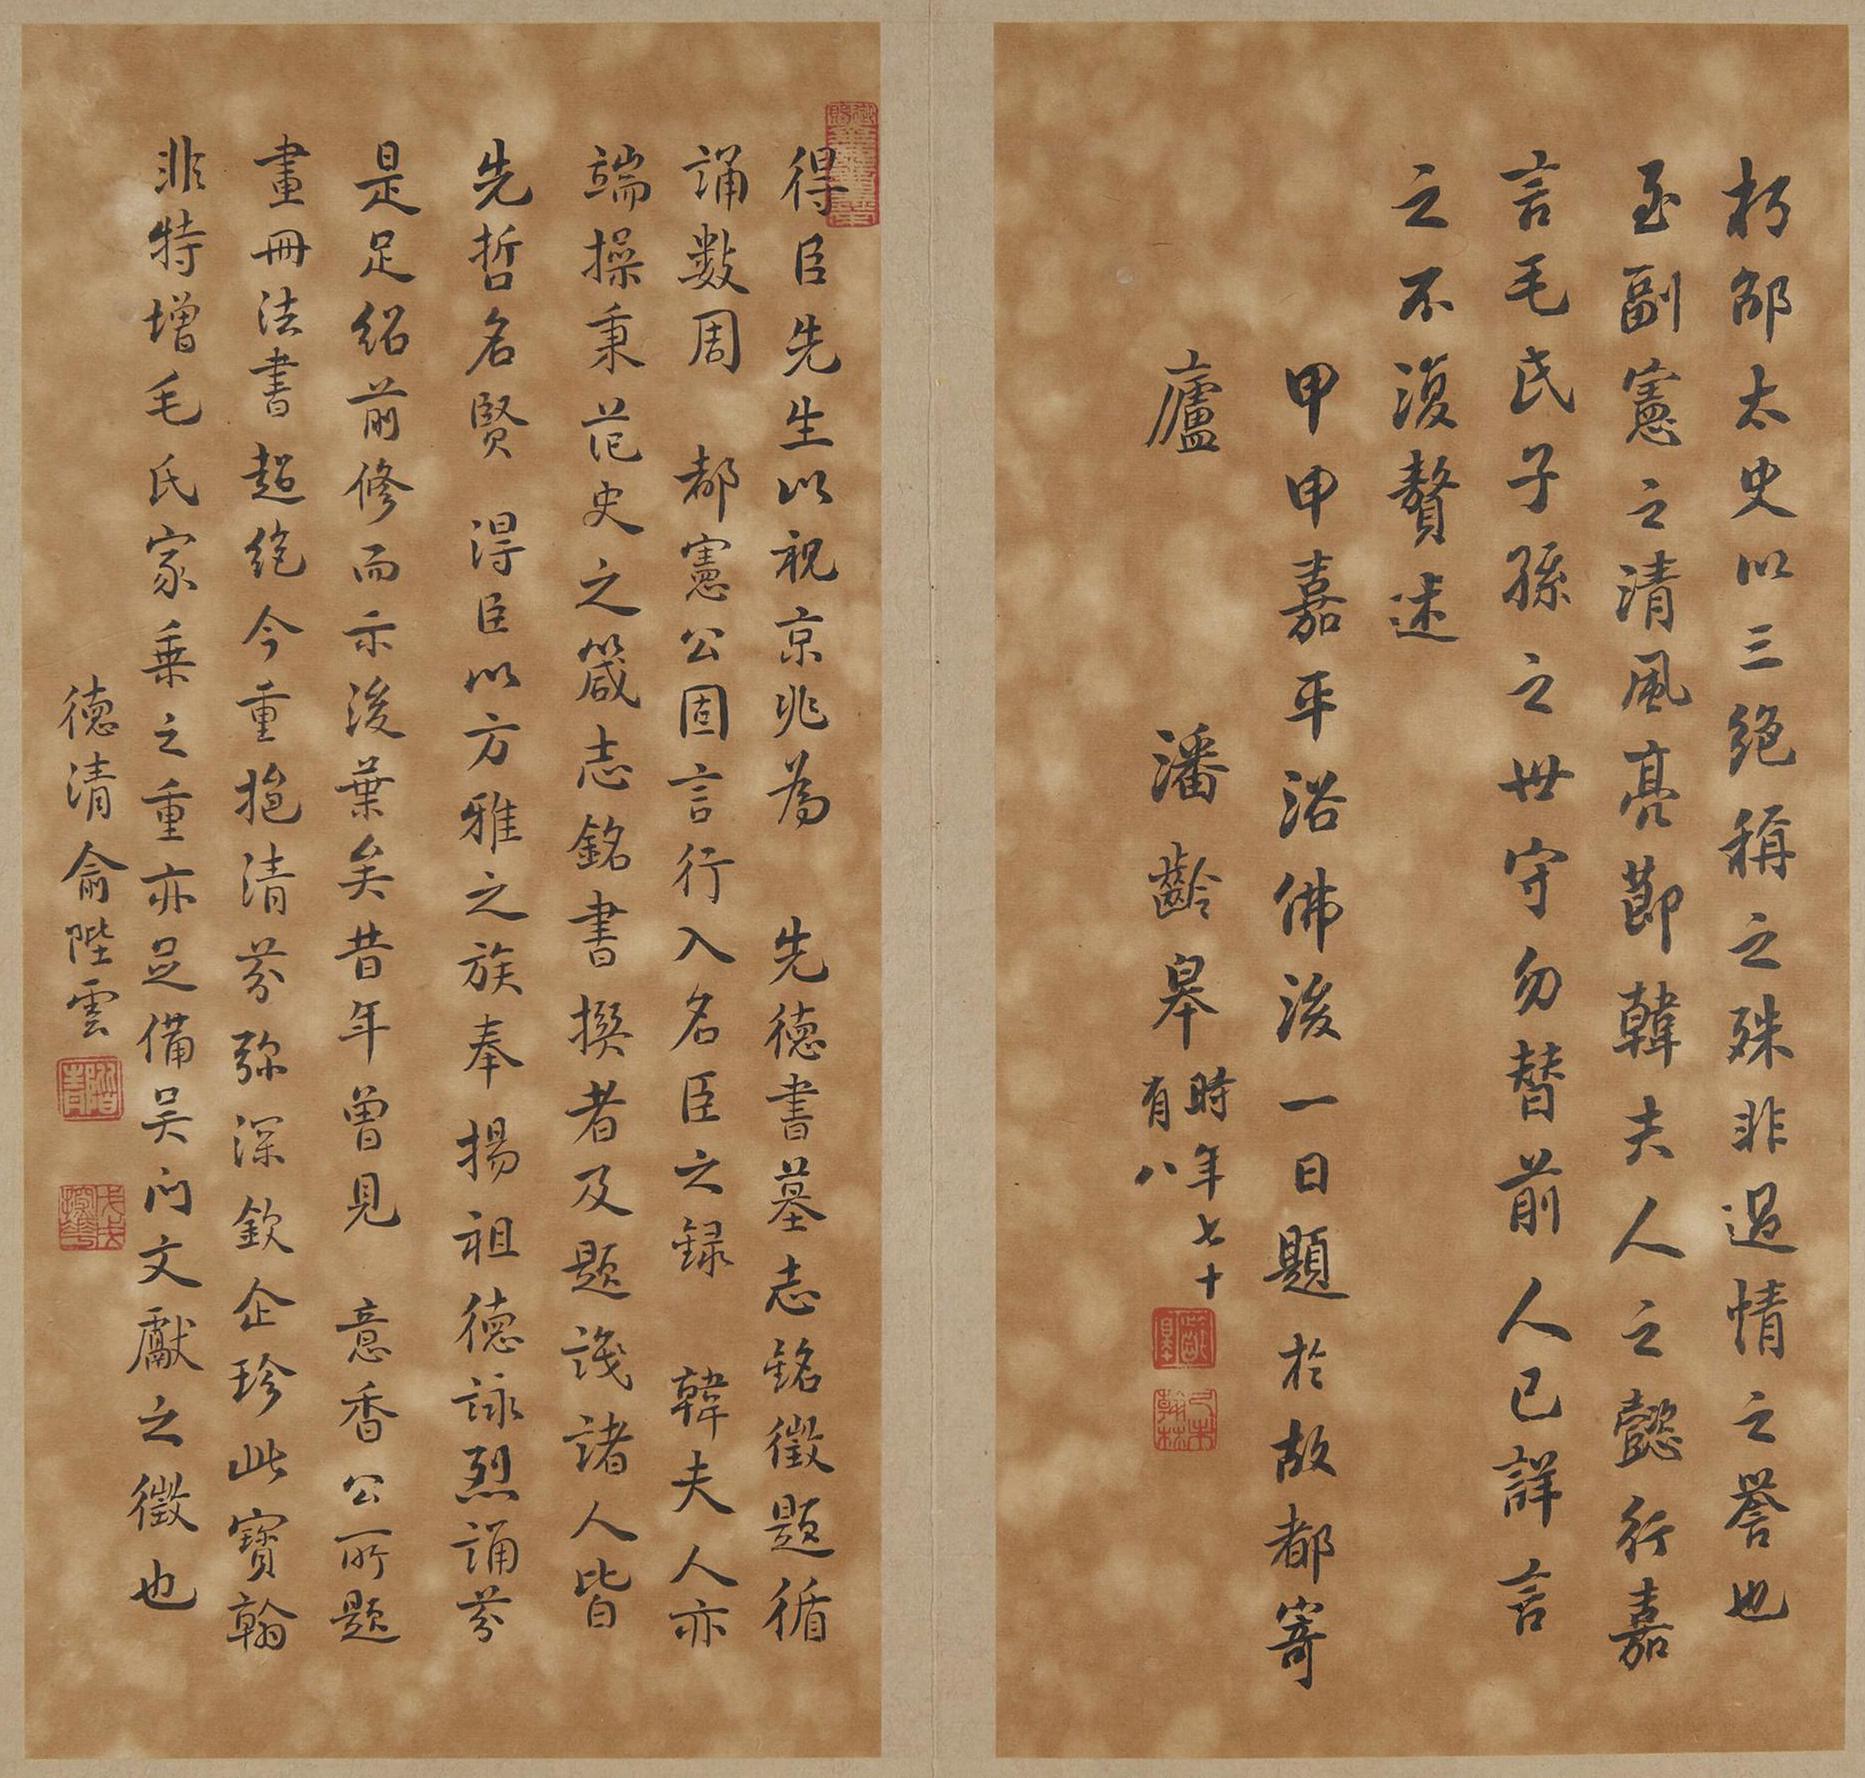 朽邵太史以三絕稱之殊非過情之譽也
至副憲之清風亮節韓夫人之懿行嘉
言毛氏子孫之世守勿替前人已詳言
之不復贅述
甲申嘉平浴佛後一日題於故都寄
廬
潘齡皋
時年七十
有八
得臣先生以祝京兆為 先德書墓志銘徵題循
誦數周 都憲公固言行入名臣之録 韓夫人亦
端操秉范史之箴志銘書撰者及題識諸人皆
先哲名賢 得臣以方雅之族奉揚祖德詠烈誦芬
是足紹前修而示後葉矣昔年曾見 意香公所題
畫冊法書超絕今重挹清芬彌深欽企珍此寶翰
非特增毛氏家乘之重亦足備吳門文獻之徵也
德清俞陛雲